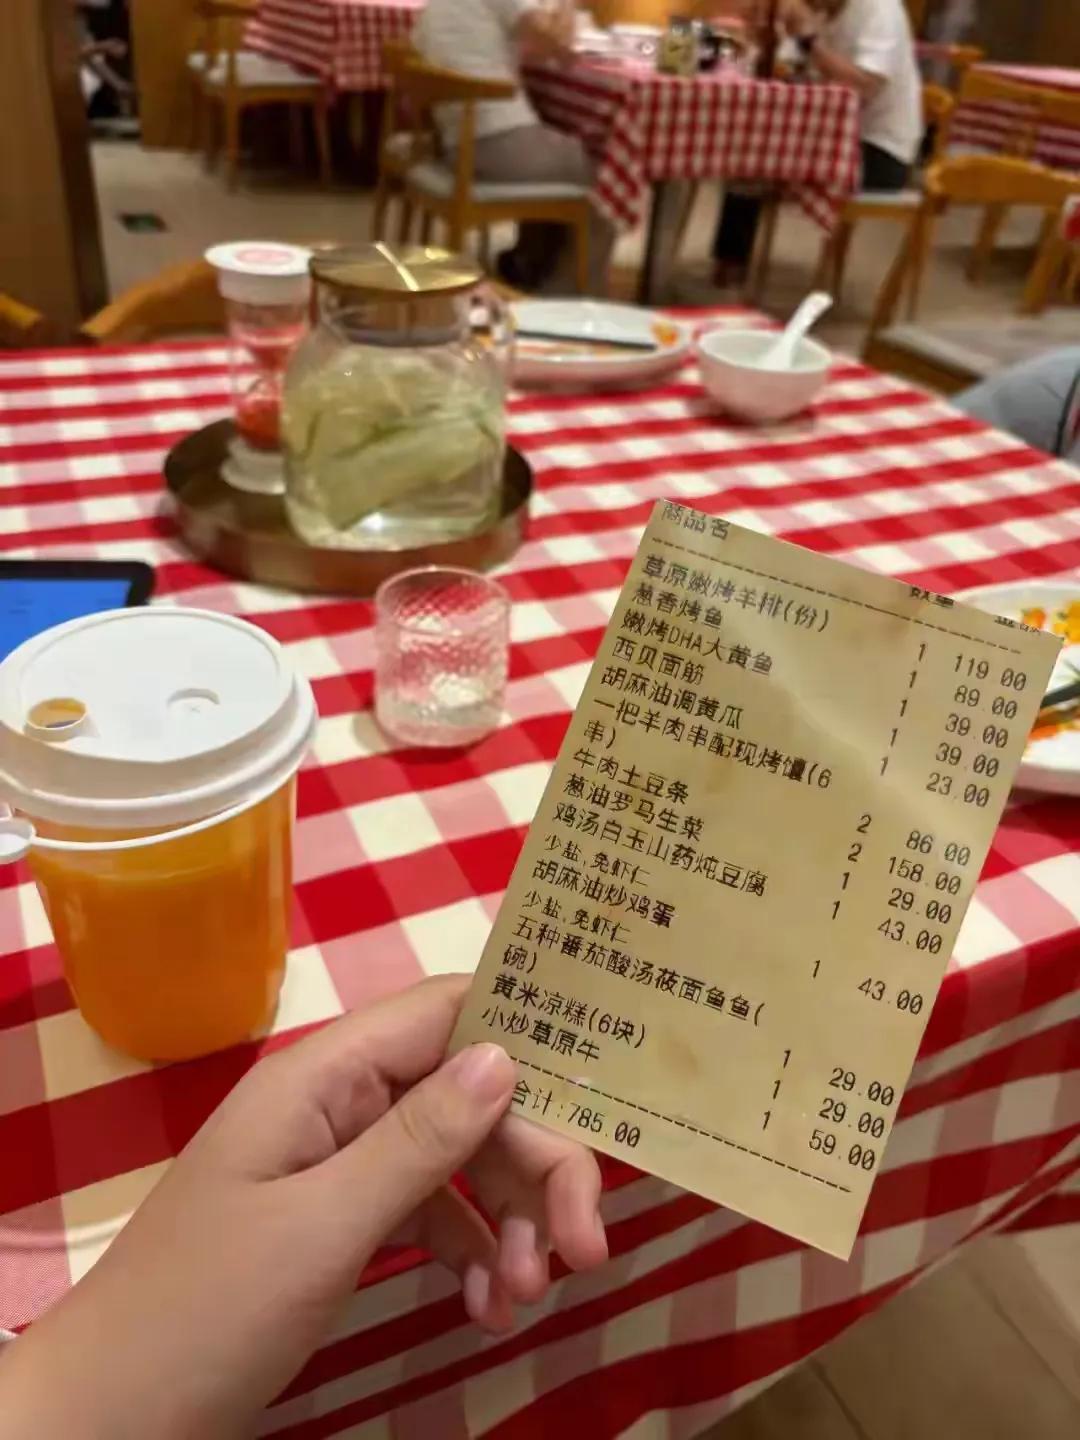 商品名 数量 金额
草原嫩烤羊排(份) 1 119.00
葱香烤鱼 1 89.00
嫩烤DHA大黄鱼 1 39.00
西贝面筋 1 39.00
胡麻油调黄瓜 1 23.00
一把羊肉串配现烤馕(6
串) 2 86.00
牛肉土豆条 2 158.00
葱油罗马生菜 1 29.00
鸡汤白玉山药炖豆腐 1 43.00
少盐,免虾仁
胡麻油炒鸡蛋 1 43.00
少盐,免虾仁
五种番茄酸汤莜面鱼鱼(
碗) 1 29.00
黄米凉糕(6块) 1 29.00
小炒草原牛 1 59.00
合计:785.00